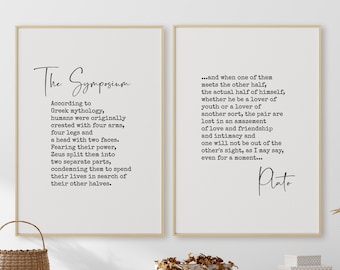 The Symposium
According to
Greek mythology,
humans were originally
created with four arms,
four legs and
a head with two faces.
Fearing their power,
Zeus split them into
two separate parts,
condemning them to spend
their lives in search of
their other halves.
...and when one of them
meets the other half,
the actual half of himself,
whether he be a lover of
youth or a lover of
another sort, the pair are
lost in an amazement
of love and friendship
and intimacy and
one will not be out of the
other's sight, as I may say,
even for a moment...
Plato